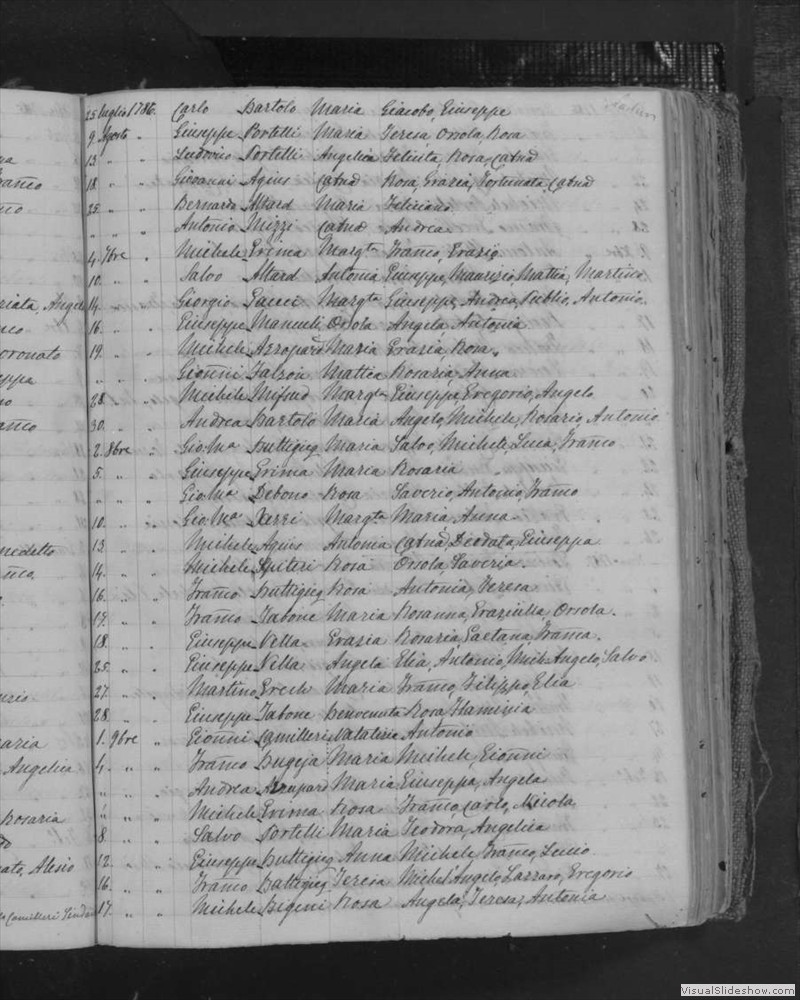 25 luglio 1786. Carlo Bartolo Maria Giacobo, Giuseppe
9. Agosto " Giuseppe Portelli Maria Teresa Orsola, Rosa
13 " " Ludovico Portelli Angelica Felicita, Rosa, Catna
18 " " Giovanni Agius Catna Rosa, Grazia, Fortunata, Catna
25. " " Bernardo Attard Maria Feliciano.
" " " Antonio Mizzi Catna Andrea
4. 7bre " Michele Grima Margta Franco, Grazio
10. " " Salvo Attard Antonia Giuseppe, Maurizio, Mattia, Martino
14. " " Giorgio Gauci Margta Giuseppe, Andrea, Publio, Antonio.
16. " " Giuseppe Manueli Orsola Angela, Antonia
19. " " Michele Azzopard Maria Grazia, Rosa.
" " " Gionni Falzon Mattia Rosaria, Anna
28. " " Michele Mifsud Margta Giuseppe, Gregorio, Angelo
30. " " Andrea Bartolo Maria Angelo, Michele, Rosario, Antonio
2. 8bre " Gio: Ma Buttigieg Maria Salvo, Michele, Luca, Franco
5. " " Giuseppe Grima Maria Rosaria
" " " Gio: Ma Debono Rosa Saverio, Antonio, Franco
10. " " Gio: Ma Xerri Margta Maria, Anna.
13 " " Michele Agius Antonia Catna, Deodata, Giuseppa
14. " " Michele Spiteri Rosa Orsola, Saveria.
16. " " Franco Buttigieg Rosa Antonia, Teresa
17. " " Franco Tabone Maria Rosanna, Graziulla, Orsola.
18. " " Giuseppe Vella Grazia Rosaria, Gaetana, Franca.
25. " " Giuseppe Vella Angela Elia, Antonio, Mich. Angelo, Salvo
27. " " Martino Grech Maria Franco, Filippo, Elia
28. " " Giuseppe Tabone Benvenuta Rosa, Flaminia
1. 9bre " Gionni Camilleri Nataleria Antonio
4. " " Franco Bugeja Maria Michele, Gionni
" " " Andrea Azzopard Maria Giuseppa, Angela
" " " Michele Grima Rosa Franco, Carlo, Nicola
8. " " Salvo Portelli Maria Teodora, Angelica
12. " " Giuseppe Buttigieg Anna Michele, Franco, Lucio
16. " " Franco Battigieg Teresa Michel Angelo, Lazzaro, Gregorio
17. " " Michele Bigeni Rosa Angela, Teresa, Antonia
VisualSlideshow.com